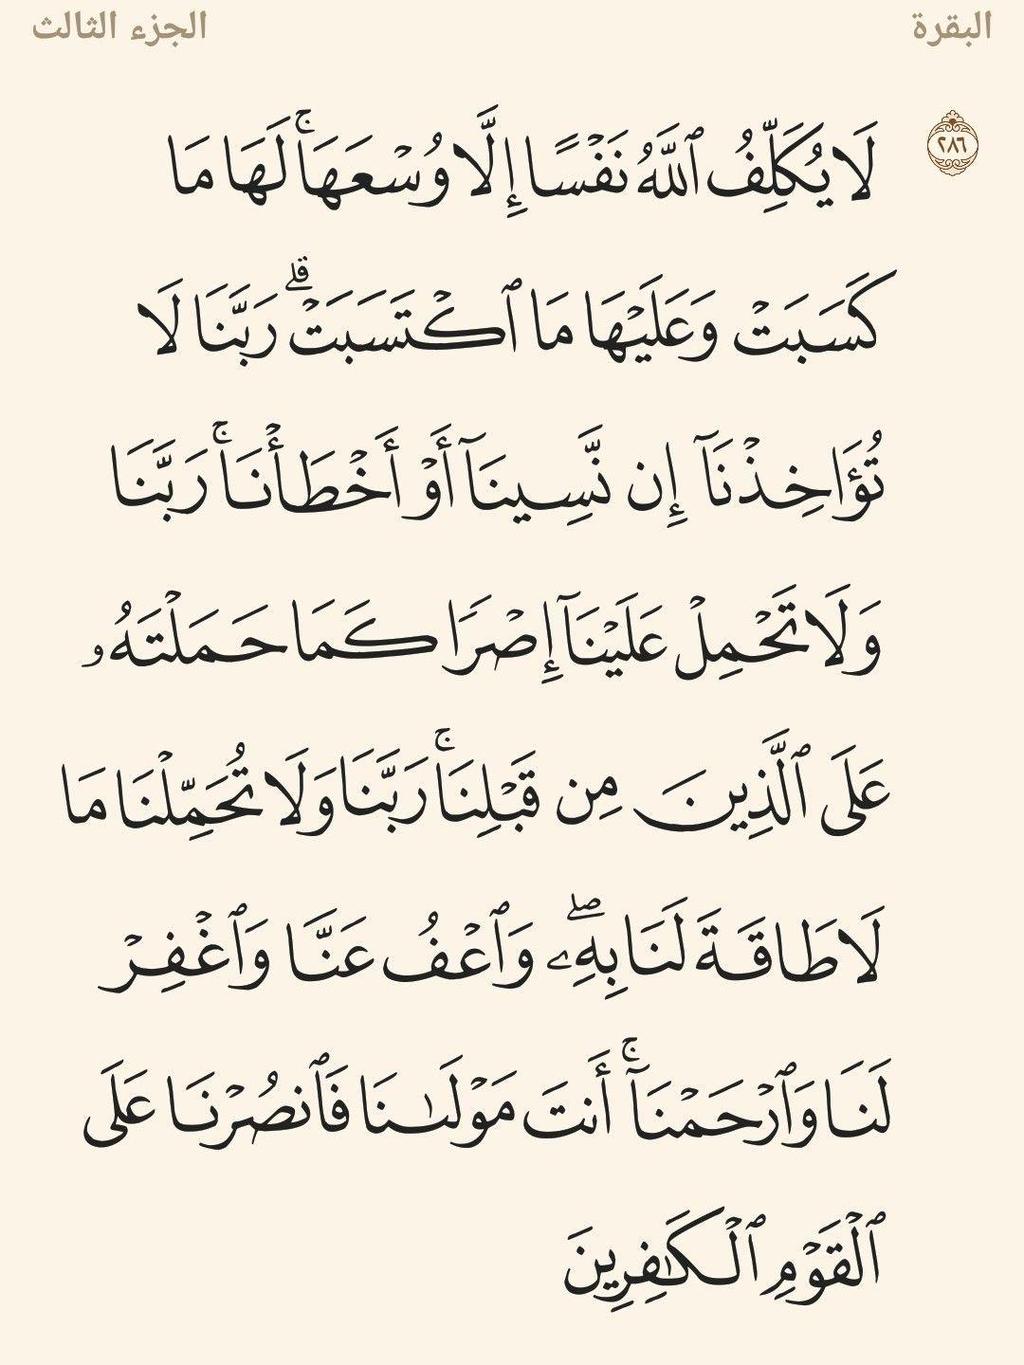 البقرة الجزء الثالث
٢٨٦ لَا يُكَلِّفُ ٱللَّهُ نَفْسًا إِلَّا وُسْعَهَاۚ لَهَا مَا
كَسَبَتْ وَعَلَيْهَا مَا ٱكْتَسَبَتْۗ رَبَّنَا لَا
تُؤَاخِذْنَآ إِن نَّسِينَآ أَوْ أَخْطَأْنَاۚ رَبَّنَا
وَلَا تَحْمِلْ عَلَيْنَآ إِصْرًا كَمَا حَمَلْتَهُۥ
عَلَى ٱلَّذِينَ مِن قَبْلِنَاۚ رَبَّنَا وَلَا تُحَمِّلْنَا مَا
لَا طَاقَةَ لَنَا بِهِۦۖ وَٱعْفُ عَنَّا وَٱغْفِرْ
لَنَا وَٱرْحَمْنَآۚ أَنتَ مَوْلَىٰنَا فَٱنصُرْنَا عَلَى
ٱلْقَوْمِ ٱلْكَـٰفِرِينَ